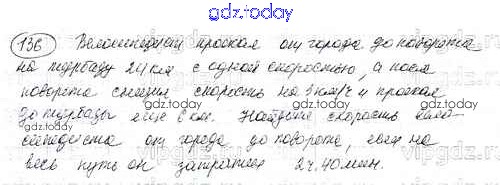 gdz.today
136 Велосипедист проехал от города до поворота
на турбазу 24 км с одной скоростью, а после
поворота снизил скорость на 3 км/ч и проехал
gdz.today gdz.today
до турбазы еще 6 км. Найдите скорость вело-
сипедиста от города до поворота, если на
весь путь он затратил 2 ч. 40 мин.
gdz.today gdz.today